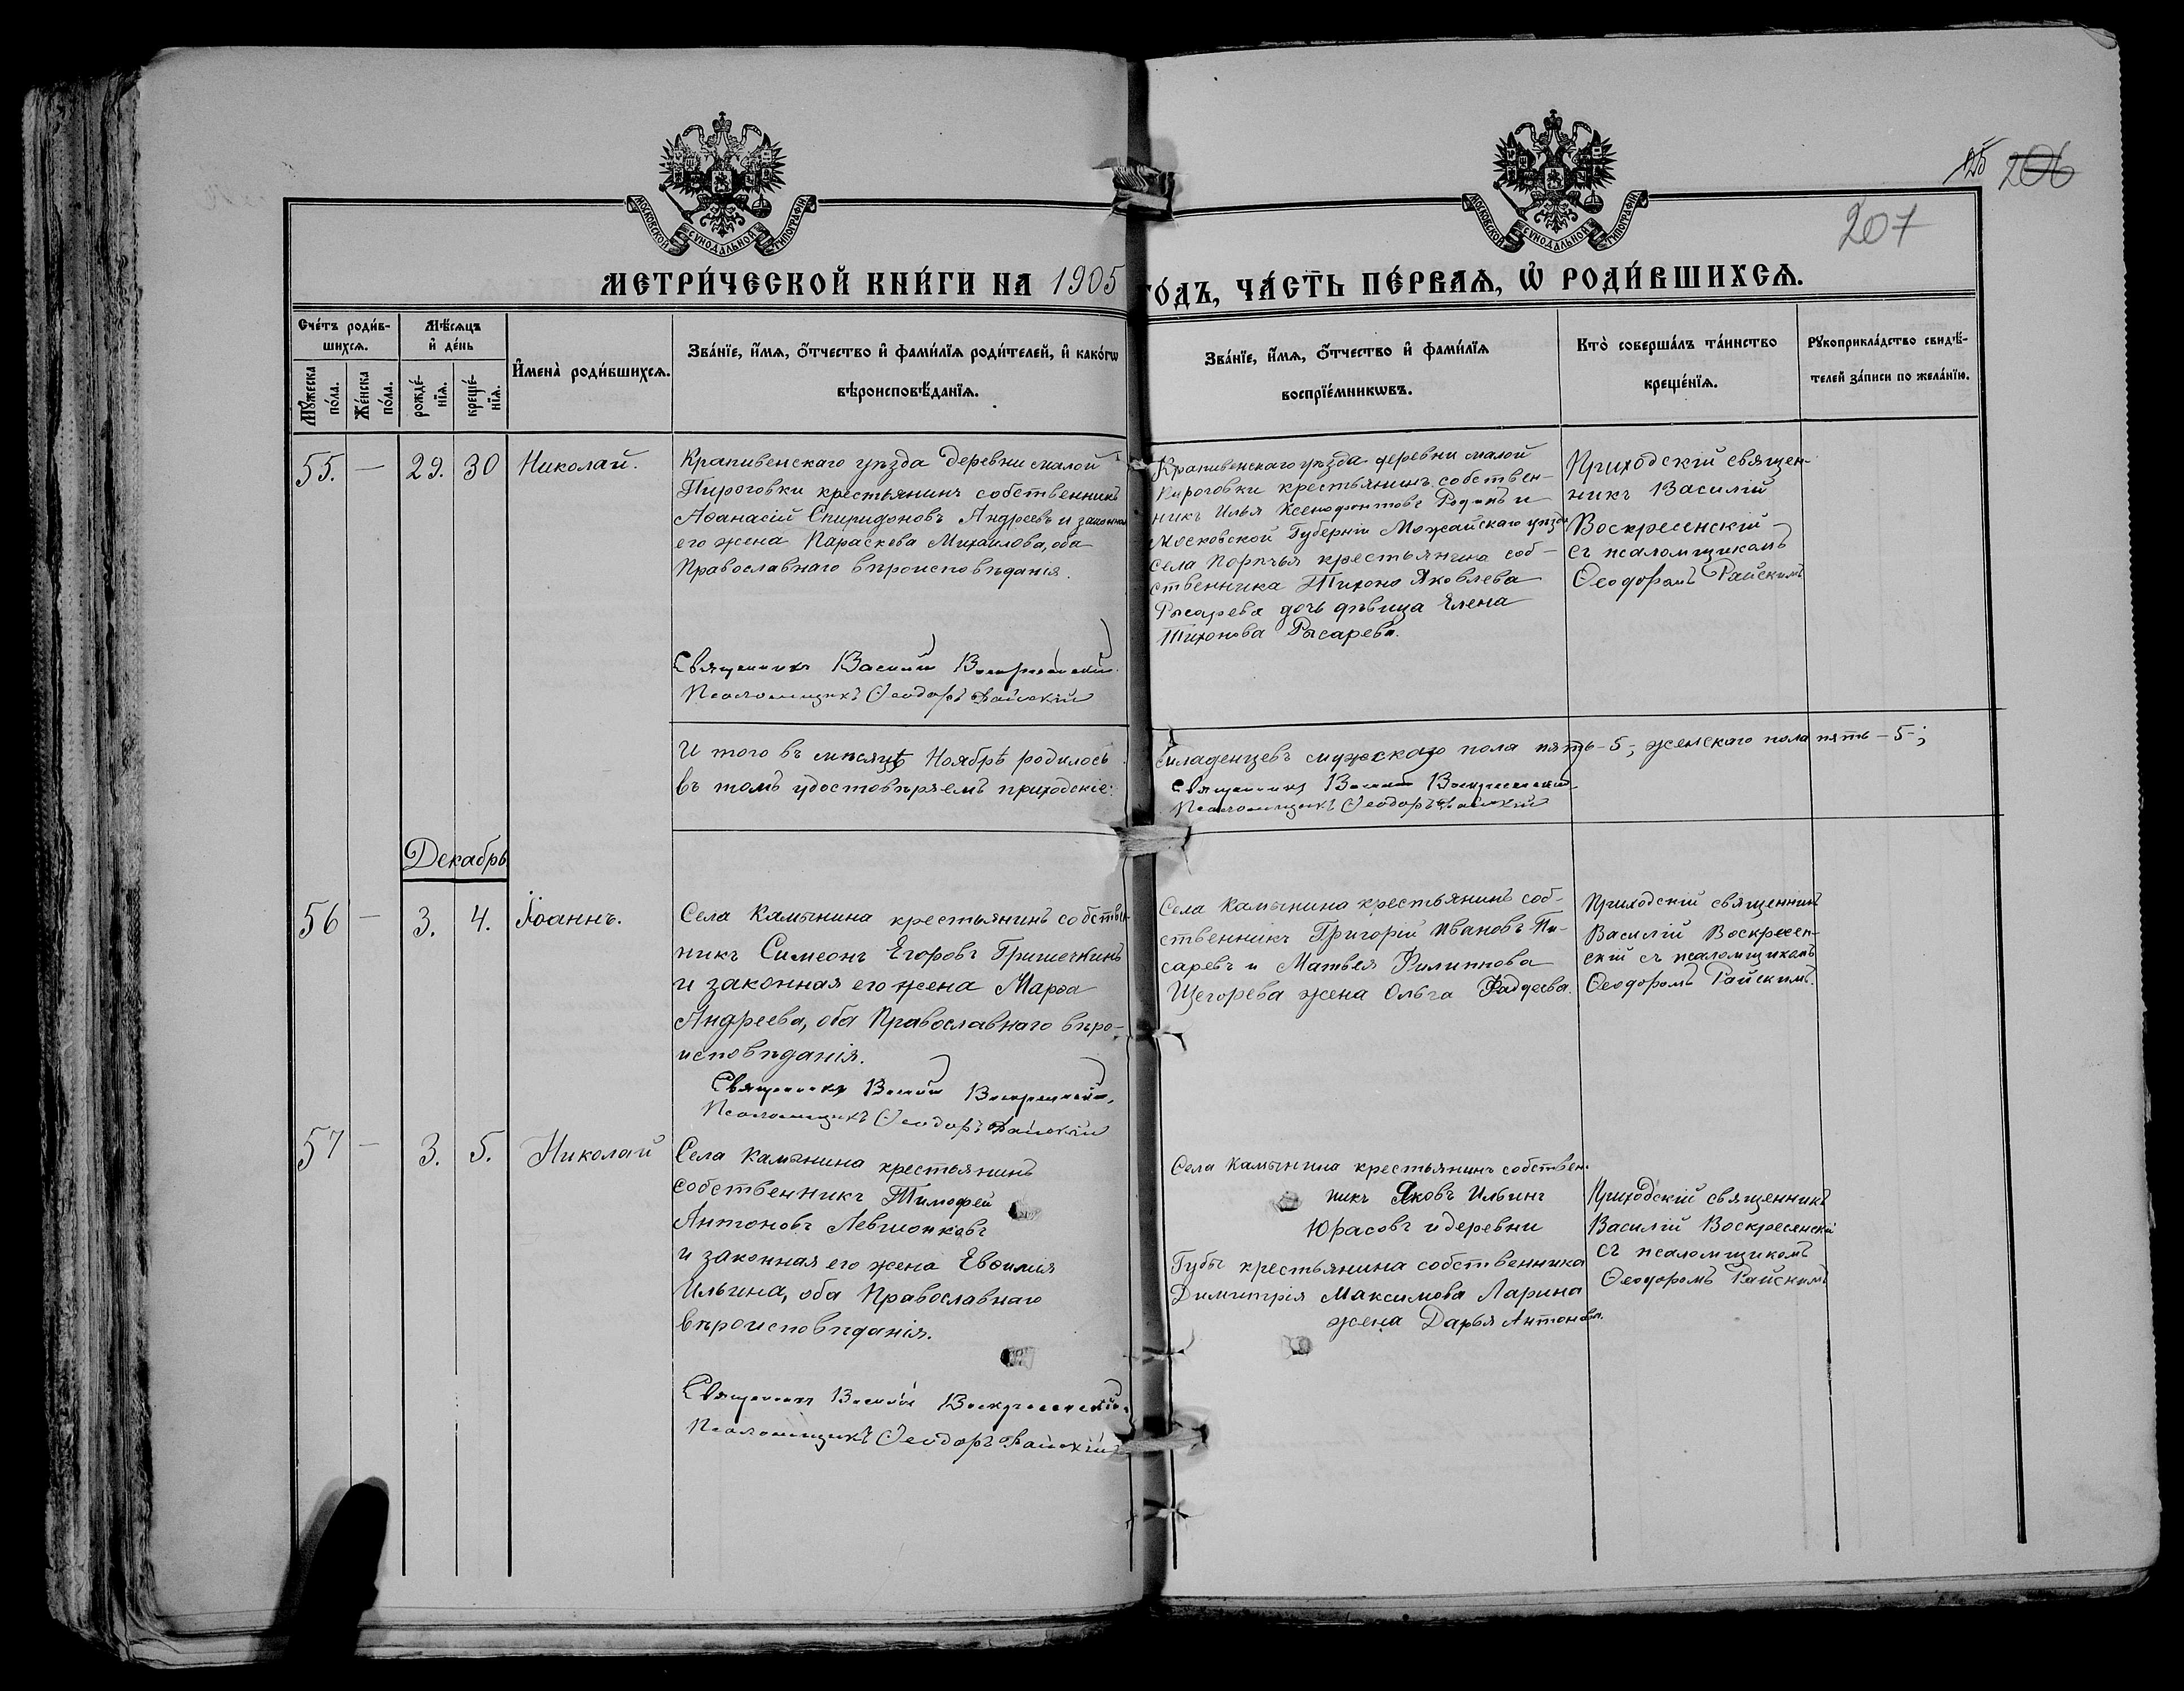 125 206
207
МОСКОВСКОЙ СѴНОДАЛЬНОЙ ТИПОГРАФІИ
МОСКОВСКОЙ СѴНОДАЛЬНОЙ ТИПОГРАФІИ
МЕТРИ́ЧЕСКОЙ КНИ́ГИ НА 1905 ГО́ДЪ, ЧА́СТЬ ПЕ́РВАѦ, Ѡ҆ РОДИ́ВШИХСѦ.
Сче́тъ роди́в-
шихсѧ.
Мꙋ́жеска
по́ла.
Же́нска
по́ла.
Мѣ́сѧцъ
и҆ де́нь
рожде́-
нїѧ.
креще́-
нїѧ.
И҆мена̀ роди́вшихсѧ.
Зва́нїе, и҆́мѧ, ѻ҆́тчество и҆ фами́лїѧ роди́телей, и҆ како́гѡ
вѣроисповѣ́данїѧ.
Зва́нїе, и҆́мѧ, ѻ҆́тчество и҆ фами́лїѧ
воспрїе́мникѡвъ.
Кто̀ соверша́лъ та́инство
креще́нїѧ.
Рꙋкоприкла́дство свидѣ́-
телей за́писи по жела́нїю.
55. — 29. 30 Николай.
Крапивенскаго уѣзда деревни малой
Пироговки крестьянинъ собственникъ
Аѳанасій Спиридоновъ Андреевъ и законная
его жена Параскева Михаилова, оба
Православнаго вѣроисповѣданія.
Священникъ Василій Воскресенскій
Псаломщикъ Ѳеодоръ Райскій
Крапивенскаго уѣзда деревни малой
Пироговки крестьянинъ собствен-
никъ Илья Ксенофонтовъ Родинъ и
Московской Губерніи Можайскаго уѣзда
села Порѣчья крестьянина соб-
ственника Тихона Яковлева
Рысарева дочь дѣвица Елена
Тихонова Рысарева.
Приходскій священ-
никъ Василій
Воскресенскій
съ псаломщикомъ
Ѳеодоромъ Райскимъ
И того въ мѣсяцѣ Ноябрѣ родилось
младенцевъ мужскаго пола пять – 5 –; женскаго пола пять – 5 –;
въ томъ удостовѣряемъ приходскіе:
Священникъ Василій Воскресенскій
Псаломщикъ Ѳеодоръ Райскій
Декабрь
56 — 3. 4. Іоаннъ.
Села Камынина крестьянинъ собствен-
никъ Симеонъ Егоровъ Гришечкинъ
и законная его жена Марѳа
Андреева, оба Православнаго вѣро-
исповѣданія.
Священникъ Василій Воскресенскій
Псаломщикъ Ѳеодоръ Райскій
Села Камынина крестьянинъ соб-
ственникъ Григорій Ивановъ Пи-
саревъ и Матвея Филиппова
Щегорева жена Ольга Фаддеева.
Приходскій священникъ
Василій Воскресен-
скій съ псаломщикомъ
Ѳеодоромъ Райскимъ.
57 — 3. 5. Николай
Села Камынина крестьянинъ
собственникъ Тимофей
Антоновъ Левшонковъ
и законная его жена Евѳимія
Ильина, оба Православнаго
вѣроисповѣданія.
Священникъ Василій Воскресенскій
Псаломщикъ Ѳеодоръ Райскій
Села Камынина крестьянинъ собствен-
никъ Яковъ Ильинъ
Юрасовъ и деревни
Губы крестьянина собственника
Димитрія Максимова Ларина
жена Дарья Антонова.
Приходскій священникъ
Василій Воскресенскій
съ псаломщикомъ
Ѳеодоромъ Райскимъ